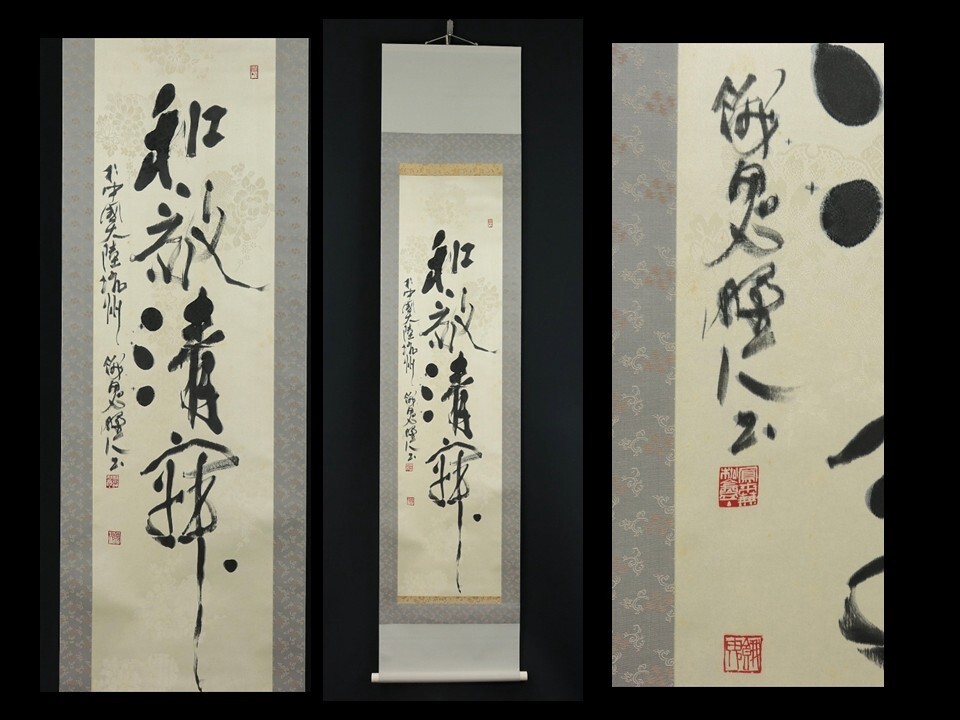 和敬清寂
於中國大陸杭州
餓鬼人書
和敬清寂
於中國大陸杭州
餓鬼人書
餓鬼人書